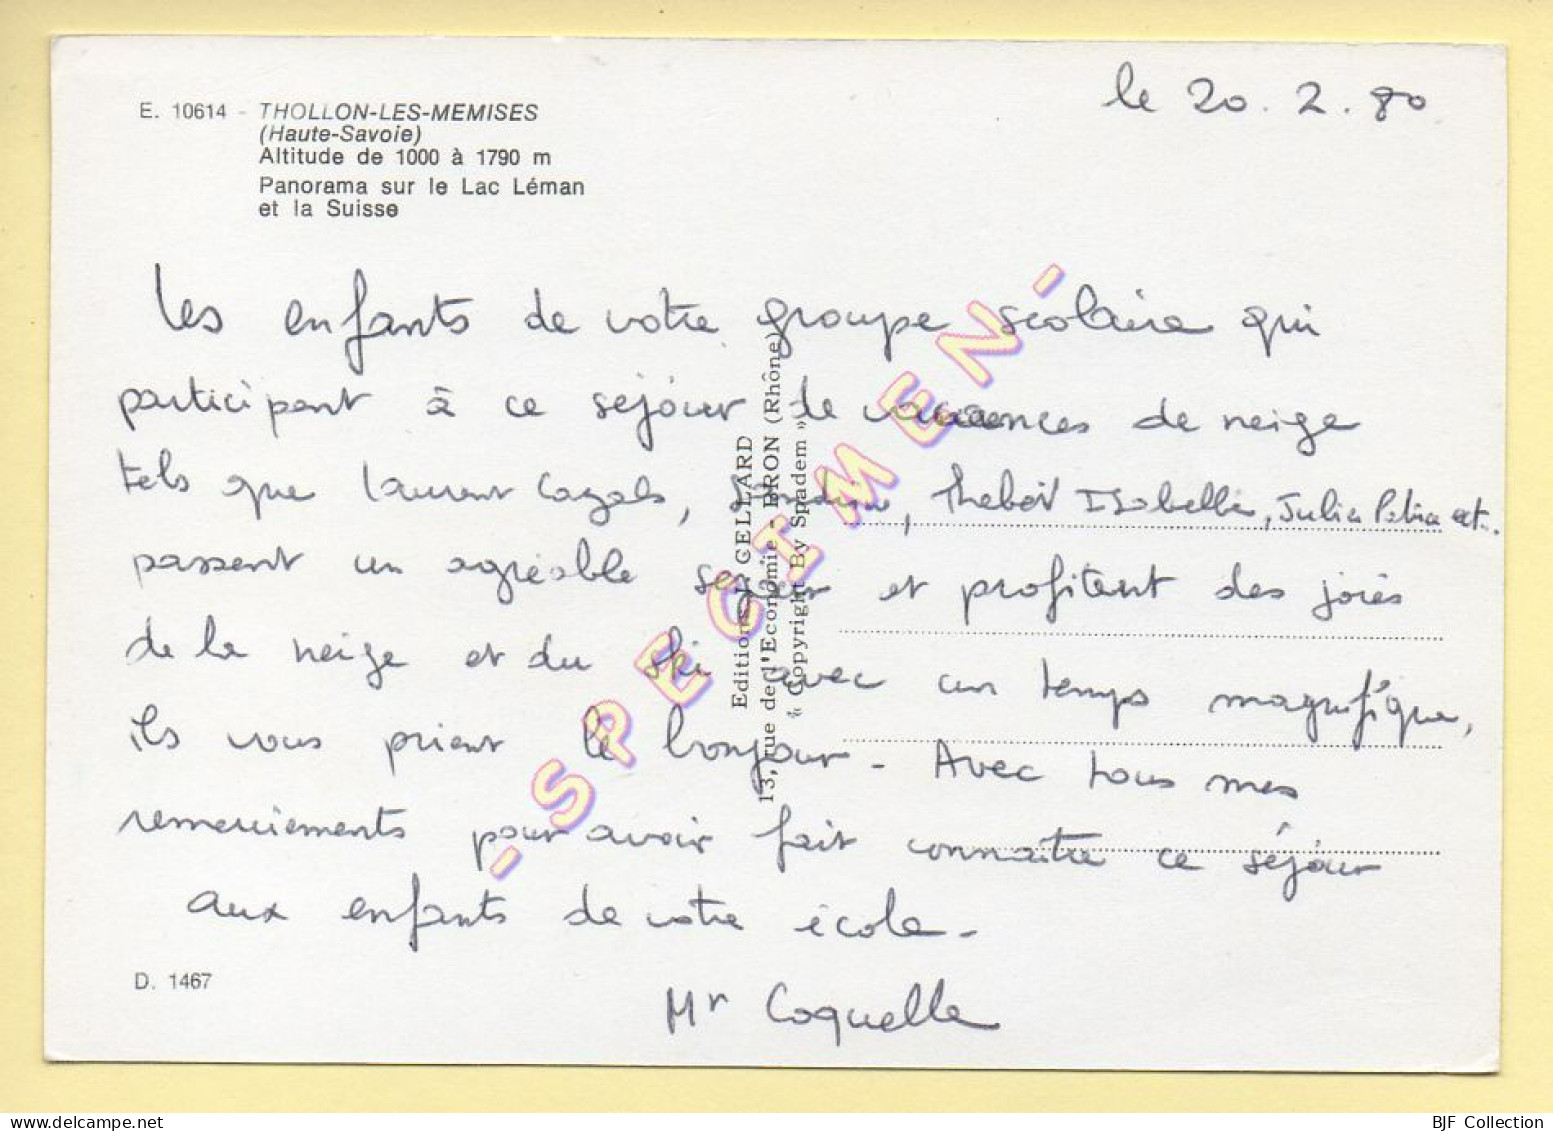 le 20.2.80
E. 10614 - THOLLON-LES-MEMISES
(Haute-Savoie)
Altitude de 1000 à 1790 m
Panorama sur le Lac Léman
et la Suisse
Les enfants de votre groupe scolaire qui
participant à ce séjour de vacances de neige
tels que Laurent Cazals, Isabelle, Julia
passent un agréable séjour et profitent des joies
de la neige et du ski avec un temps magnifique,
ils vous prient le bonjour - Avec tous mes
remerciements pour avoir fait connaître ce séjour
aux enfants de votre école -
Mr Coquelle
D. 1467
Editions J. CELLARD
13, rue de l'Economie - BRON (Rhône)
« Copyright By Spadem »
- SPECIMEN -
BJF Collection